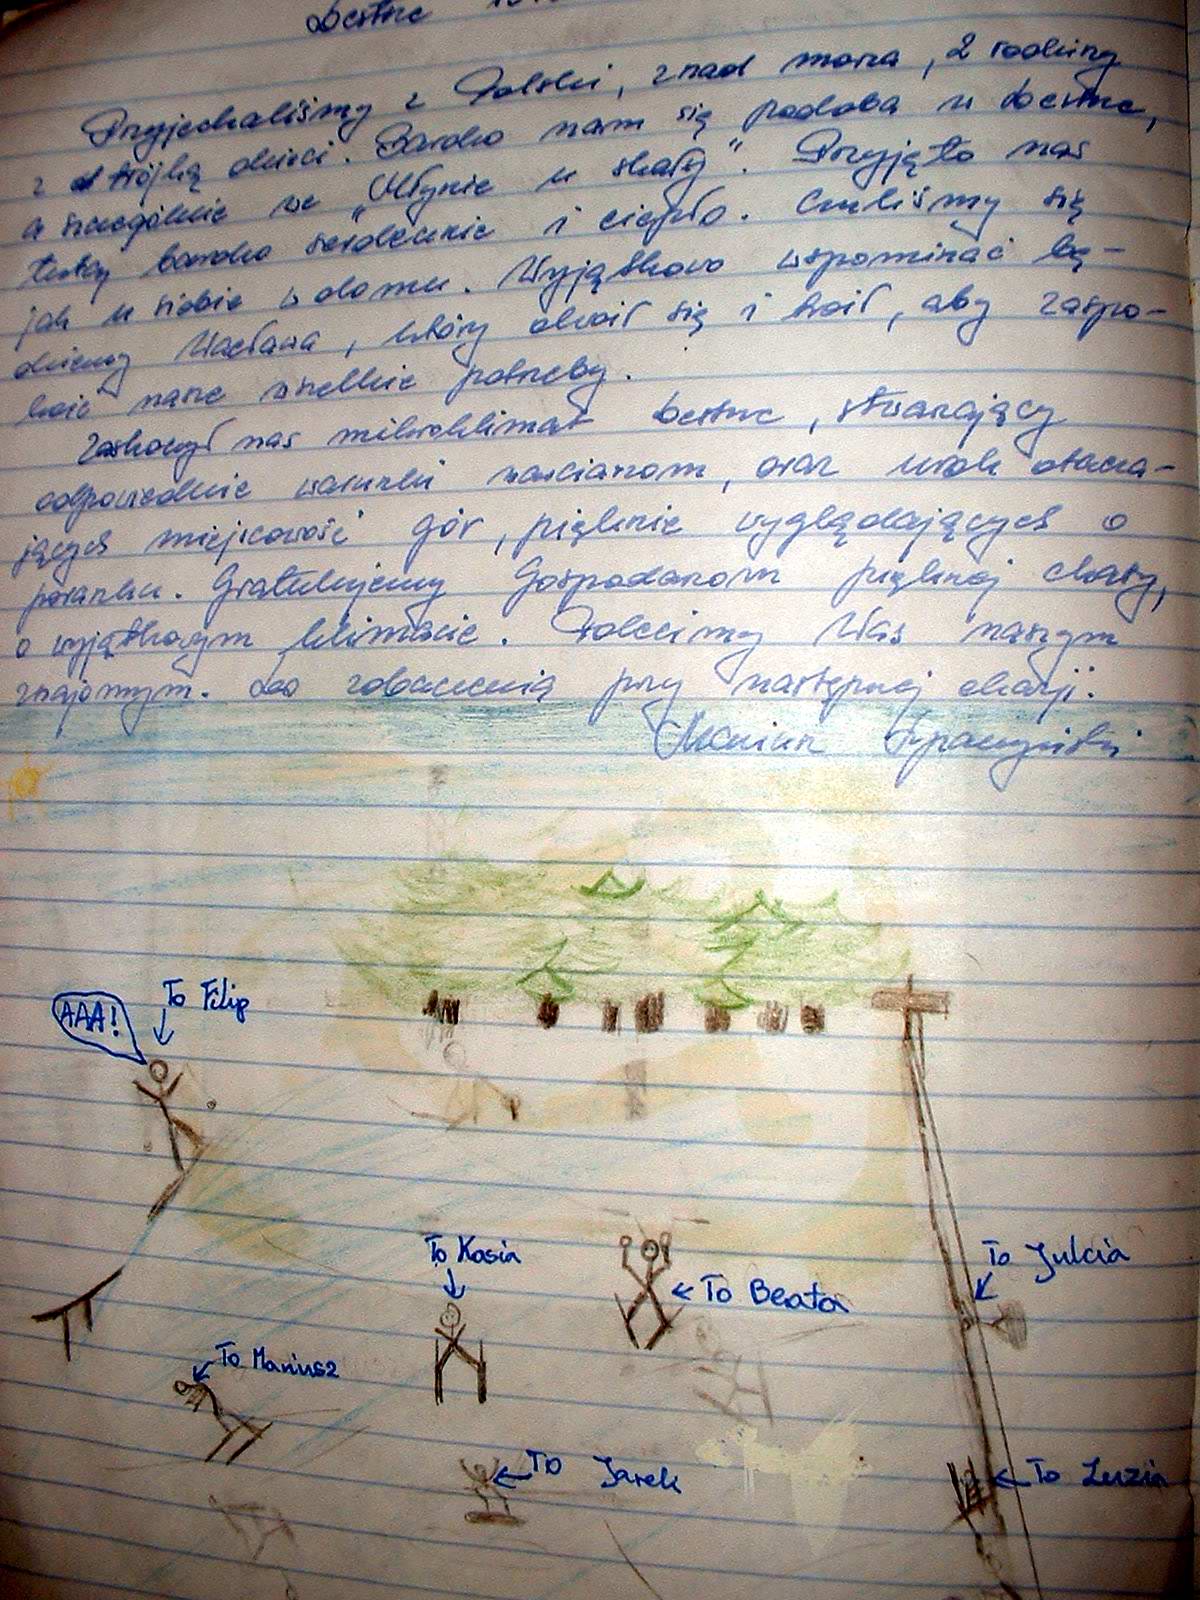 Deštne
Przyjechaliśmy z Polski, znad morza, 2 rodziny
z trójką dzieci. Bardzo nam się podoba w Destne,
a szczególnie we „Młynie u skały". Przyjęto nas
tutaj bardzo serdecznie i ciepło. Czuliśmy się
jak u siebie w domu. Wyjątkowo wspominać bę-
dziemy Wacława, który dwoił się i troił, aby zaspo-
koić nasze wszelkie potrzeby.
Zaskoczył nas mikroklimat Destne, stwarzający
odpowiednie warunki narciarzom, oraz urok otacza-
jących miejscowość gór, pięknie wyglądających o
poranku. Gratulujemy Gospodarzom pięknej chaty,
o wyjątkowym klimacie. Polecimy Was naszym
znajomym. Do zobaczenia przy następnej okazji.
Mariusz
AAA!
To Filip
To Kasia
To Beata
To Julcia
To Mariusz
To Jarek
To Luzia